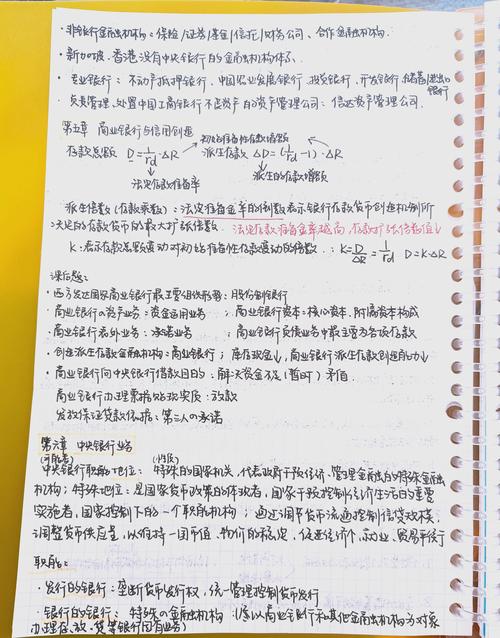 · 非银行金融机构：保险/证券/基金/信托/财务公司、合作金融机构.
· 新加坡、香港没有中央银行的金融机构体系
· 专业银行：不动产抵押银行、中国农业发展银行、投资银行、开发银行、储蓄/进出口银行
· 负责管理、处置中国工商银行不良资产的资产管理公司：信达资产管理公司.
第五章 商业银行与信用创造
初始存款性存款增额
存款总额 D=1/rd·ΔR 派生存款：ΔD=(1/rd-1)·ΔR
法定存款准备率 派生的存款增额
派生倍数(存款乘数)：法定准备金率的倒数表示银行存款货币创造机制所
决定的存款货币的最大扩张倍数. 法定存款准备金率越高，存款扩张倍数值↓
K：表示存款总额变动对初始存款性存款变动的倍数. ∴K=D/ΔR=1/rd D=K·ΔR
课后题：
· 西方发达国家商业银行最主要组织形势：股份制银行
· 商业银行の资产业务：资金运用业务 ；商业银行资本：核心资本、附属资本构成
· 商业银行表外业务：承诺业务 ；商业银行负债业务中最主要为各项存款
· 创造派生存款金融机构：商业银行；库存现金↓，商业银行派生存款创造能力↓
· 商业银行向中央银行借款目的：解决资金不足(暂时)矛盾
商业银行办理票据贴现实质：放款
发放保证贷款依据：第三人の承诺
第六章 中央银行业务
中央银行职能地位：特殊的国家机关，代表政府干预经济、管理金融の特殊金融
机构；特殊地位：是国家货币政策的体现者，国家干预控制经济生活的重要
实施者，国家控制下的一个职能机构；通过调节货币流通控制信贷规模，
调整货币供应量，以保持一国币值、物价的稳定，促进经济↑、就业、贸易平行
职能：
· 发行的银行：垄断货币发行权，统一管理控制货币发行
· 银行的银行：特殊の金融机构(「以商业银行和其他金融机构为对象
办理存、放、贷等银行固有业务)